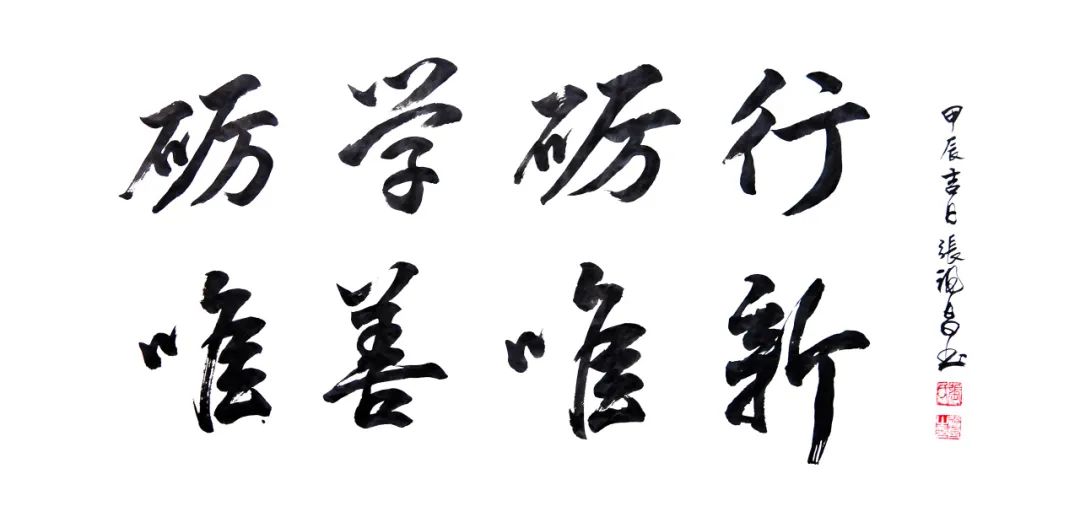 砺学砺行
唯善唯新
甲辰吉日張祖昌书